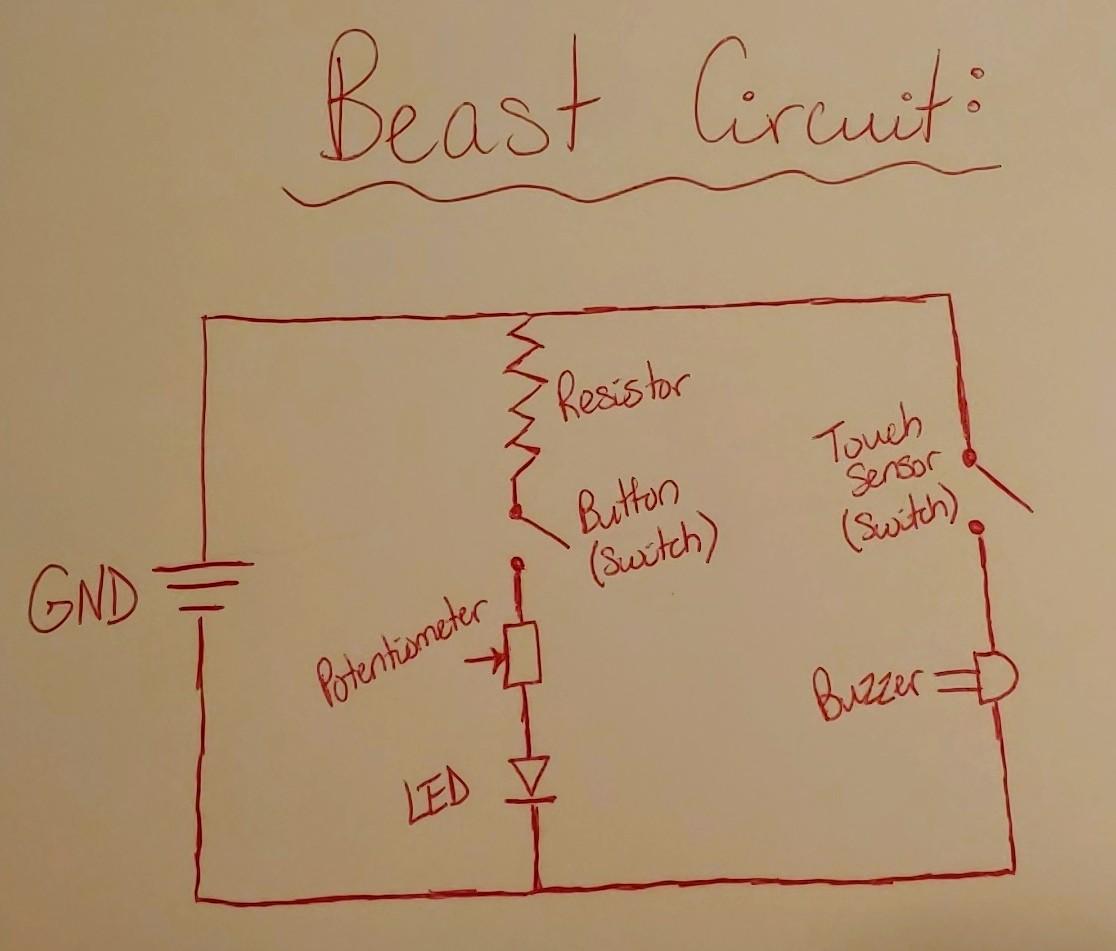 Beast Circuit:
Resistor
Button
(Switch)
Touch
Sensor
(Switch)
GND
Potentiometer
Buzzer
LED